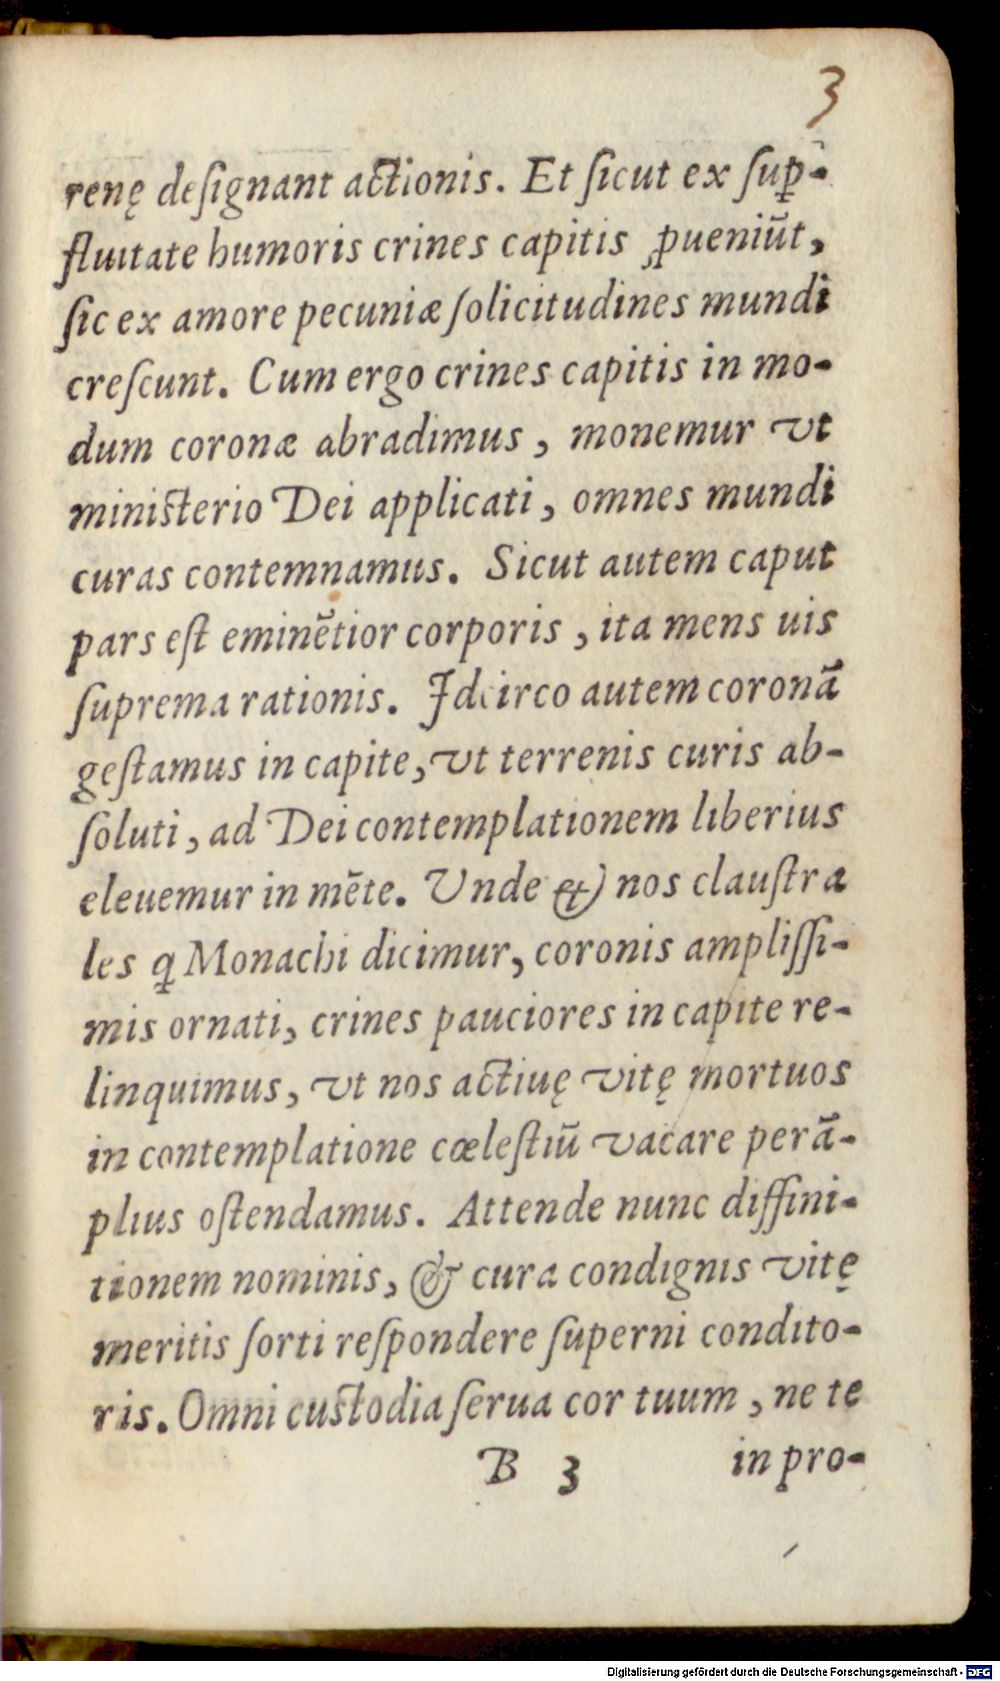 3
renę deſignant actionis. Et ſicut ex ſuꝑ-
fluitate humoris crines capitis ꝓueniūt,
ſic ex amore pecuniæ ſolicitudines mundi
creſcunt. Cum ergo crines capitis in mo-
dum coronæ abradimus, monemur vt
ministerio Dei applicati, omnes mundi
curas contemnamus. Sicut autem caput
pars eſt eminētior corporis, ita mens uis
ſuprema rationis. Idcirco autem coronā
geſtamus in capite, vt terrenis curis ab-
ſoluti, ad Dei contemplationem liberius
eleuemur in mēte. Unde & nos clauſtra
les ꝗ Monachi dicimur, coronis ampliſſi-
mis ornati, crines pauciores in capite re-
linquimus, vt nos actiuę vitę mortuos
in contemplatione cœleſtiū vacare perā-
plius oſtendamus. Attende nunc diffini-
tionem nominis, & cura condignis vitę
meritis ſorti reſpondere ſuperni condito-
ris. Omni custodia ſerua cor tuum, ne te
B 3 in pro-
Digitalisierung gefördert durch die Deutsche Forschungsgemeinschaft - DFG